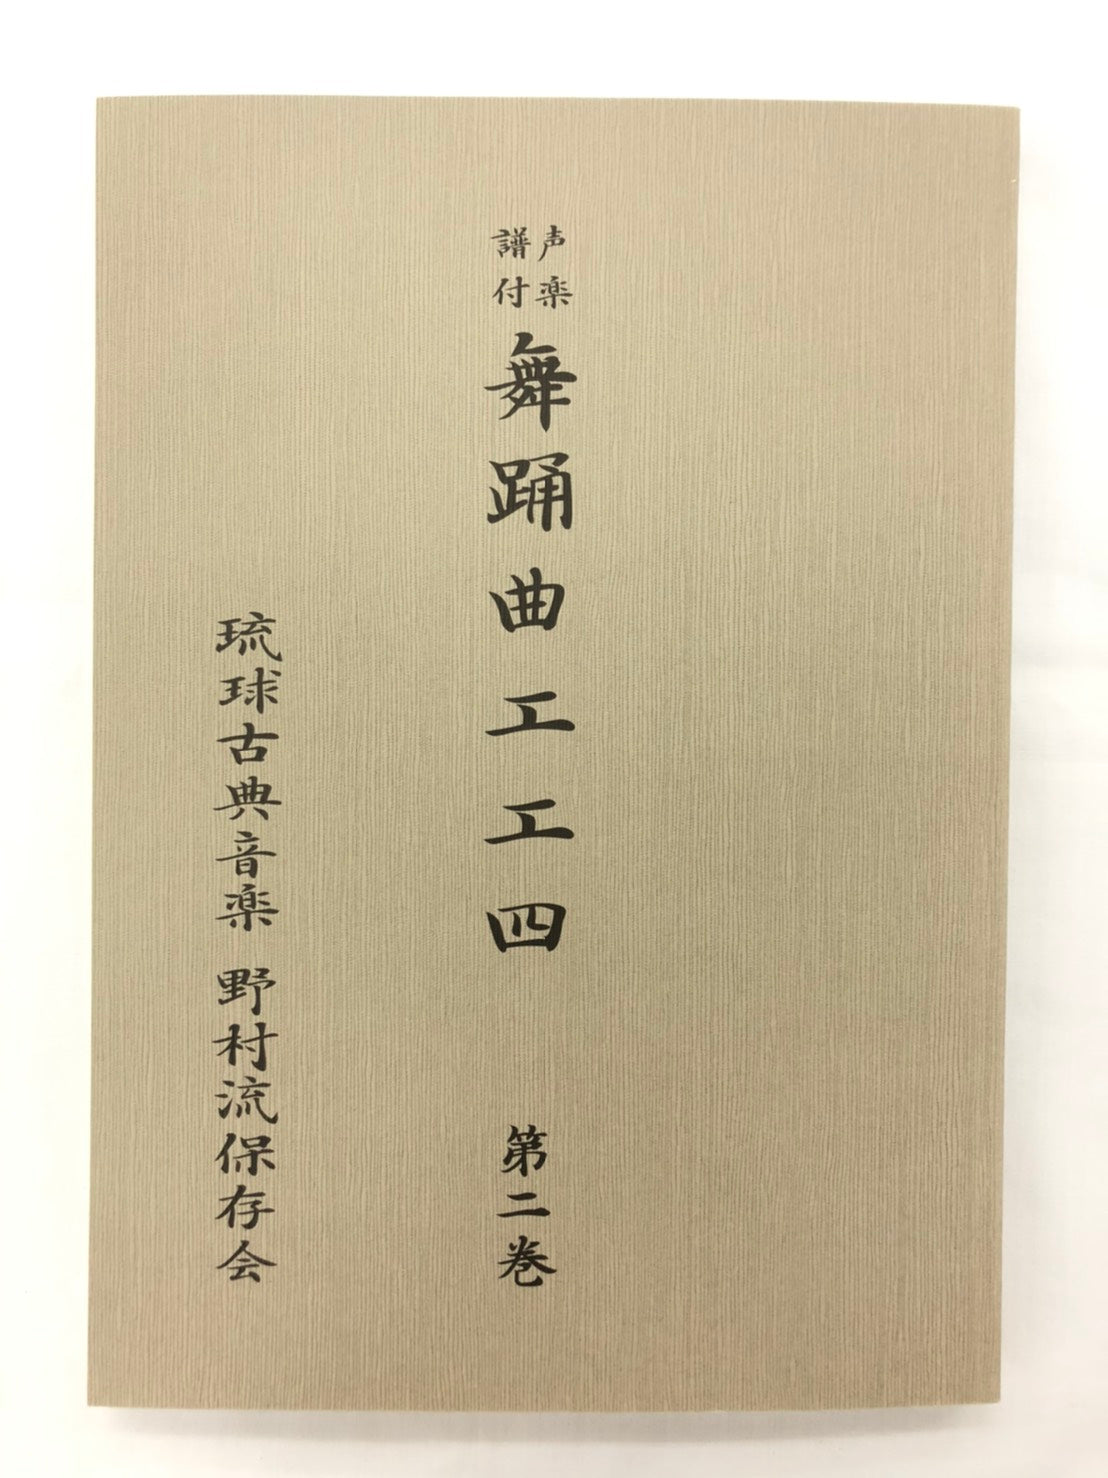 声楽
譜付
舞踊曲工工四 第二巻
琉球古典音楽 野村流保存会